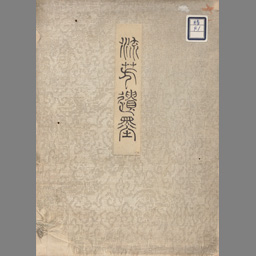 流芳遺墨